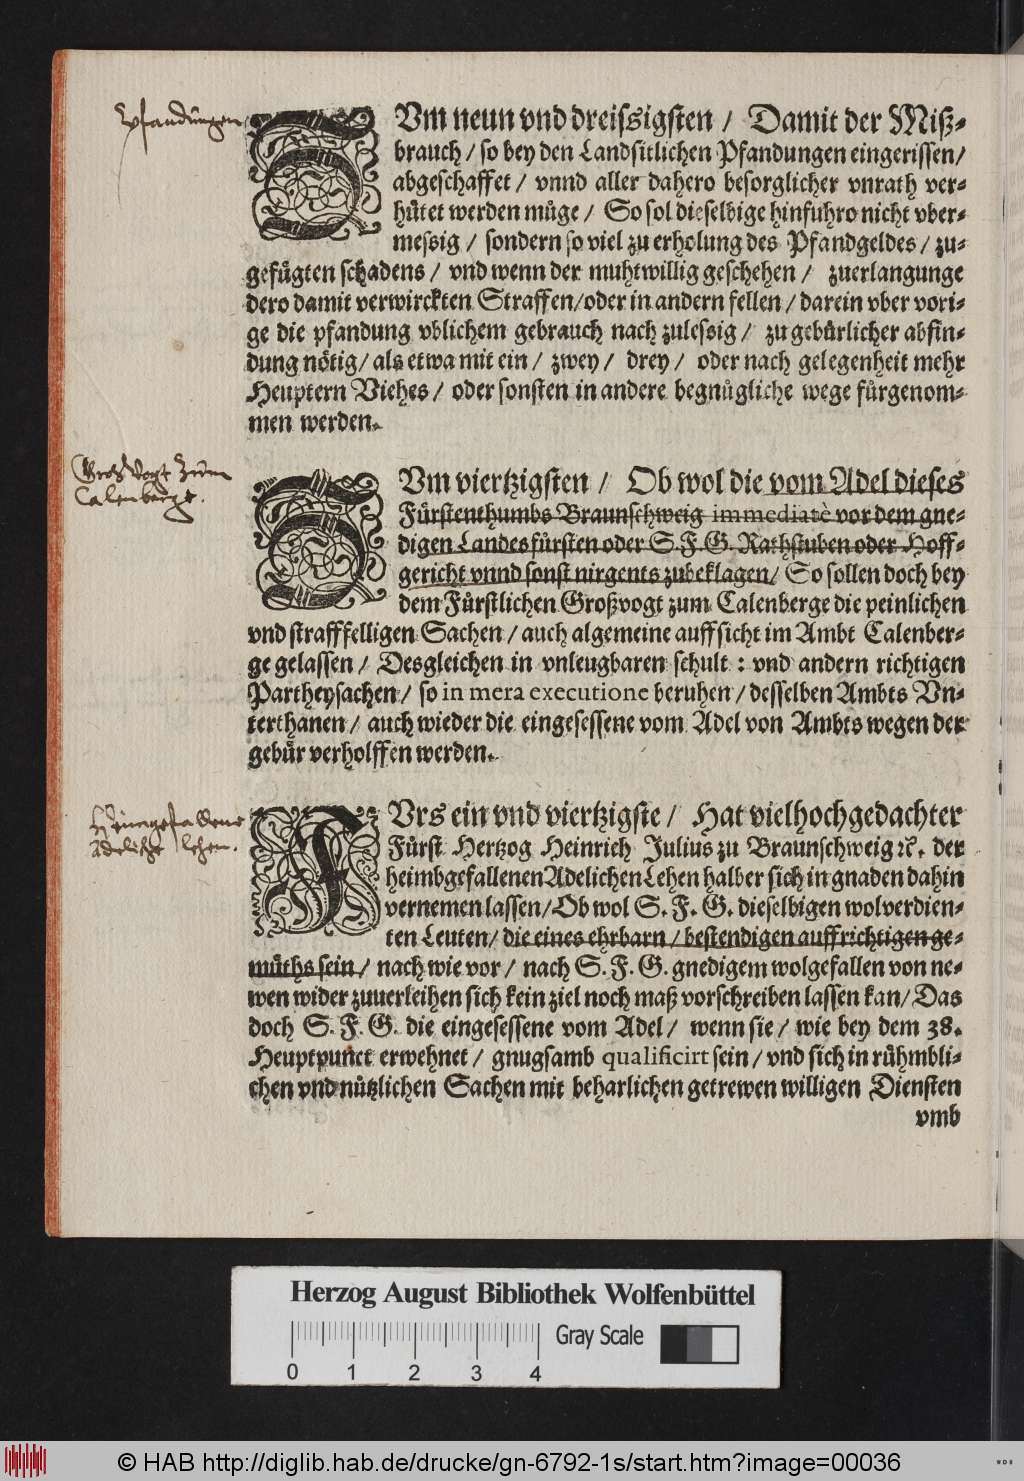 Pfandungen
ZVm neun vnd dreissigsten / Damit der Miß-
brauch / so bey den Landsitlichen Pfandungen eingerissen /
abgeschaffet / vnnd aller dahero besorglicher vnrath ver-
huͤtet werden muͤge / So sol dieselbige hinfuhro nicht vber-
messig / sondern so viel zu erholung des Pfandgeldes / zu-
gefuͤgten schadens / vnd wenn der muhtwillig geschehen / zuerlangunge
dero damit verwirckten Straffen / oder in andern fellen / darein vber vori-
ge die pfandung vblichem gebrauch nach zulessig / zu gebuͤrlicher abfin-
dung noͤtig / als etwa mit ein / zwey / drey / oder nach gelegenheit mehr
Heuptern Viehes / oder sonsten in andere begnuͤgliche wege fuͤrgenom-
men werden.
GroßVogt Zum
Calenberge.
ZVm viertzigsten / Ob wol die vom Adel dieses
Fuͤrstenthumbs Braunschweig immediatè vor dem gne-
digen Landesfuͤrsten oder S. F. G. Rathstuben oder Hoff-
gericht vnnd sonst nirgents zubeklagen / So sollen doch bey
dem Fuͤrstlichen Großvogt zum Calenberge die peinlichen
vnd strafffelligen Sachen / auch algemeine auffsicht im Ambt Calenber-
ge gelassen / Desgleichen in vnleugbaren schult : vnd andern richtigen
Partheysachen / so in mera executione beruhen / desselben Ambts Vn-
terthanen / auch wieder die eingesessene vom Adel von Ambts wegen der
gebuͤr verholffen werden.
Heimgefallene
adeliche lehen.
FVrs ein vnd viertzigste / Hat vielhochgedachter
Fuͤrst Hertzog Heinrich Julius zu Braunschweig ꝛc. der
heimbgefallenen Adelichen Lehen halber sich in gnaden dahin
vernemen lassen / Ob wol S. F. G. dieselbigen wolverdien-
ten Leuten / die eines ehrbarn / bestendigen auffrichtigen ge-
muͤths sein / nach wie vor / nach S. F. G. gnedigem wolgefallen von ne-
wen wider zuuerleihen sich kein ziel noch maß vorschreiben lassen kan / Das
doch S. F. G. die eingesessene vom Adel / wenn sie / wie bey dem 38.
Heuptpunct erwehnet / gnugsamb qualificirt sein / vnd sich in ruͤhmbli-
chen vnd nuͤtzlichen Sachen mit beharlichen getrewen willigen Diensten
vmb
Herzog August Bibliothek Wolfenbüttel
Gray Scale
0 1 2 3 4
© HAB http://diglib.hab.de/drucke/gn-6792-1s/start.htm?image=00036